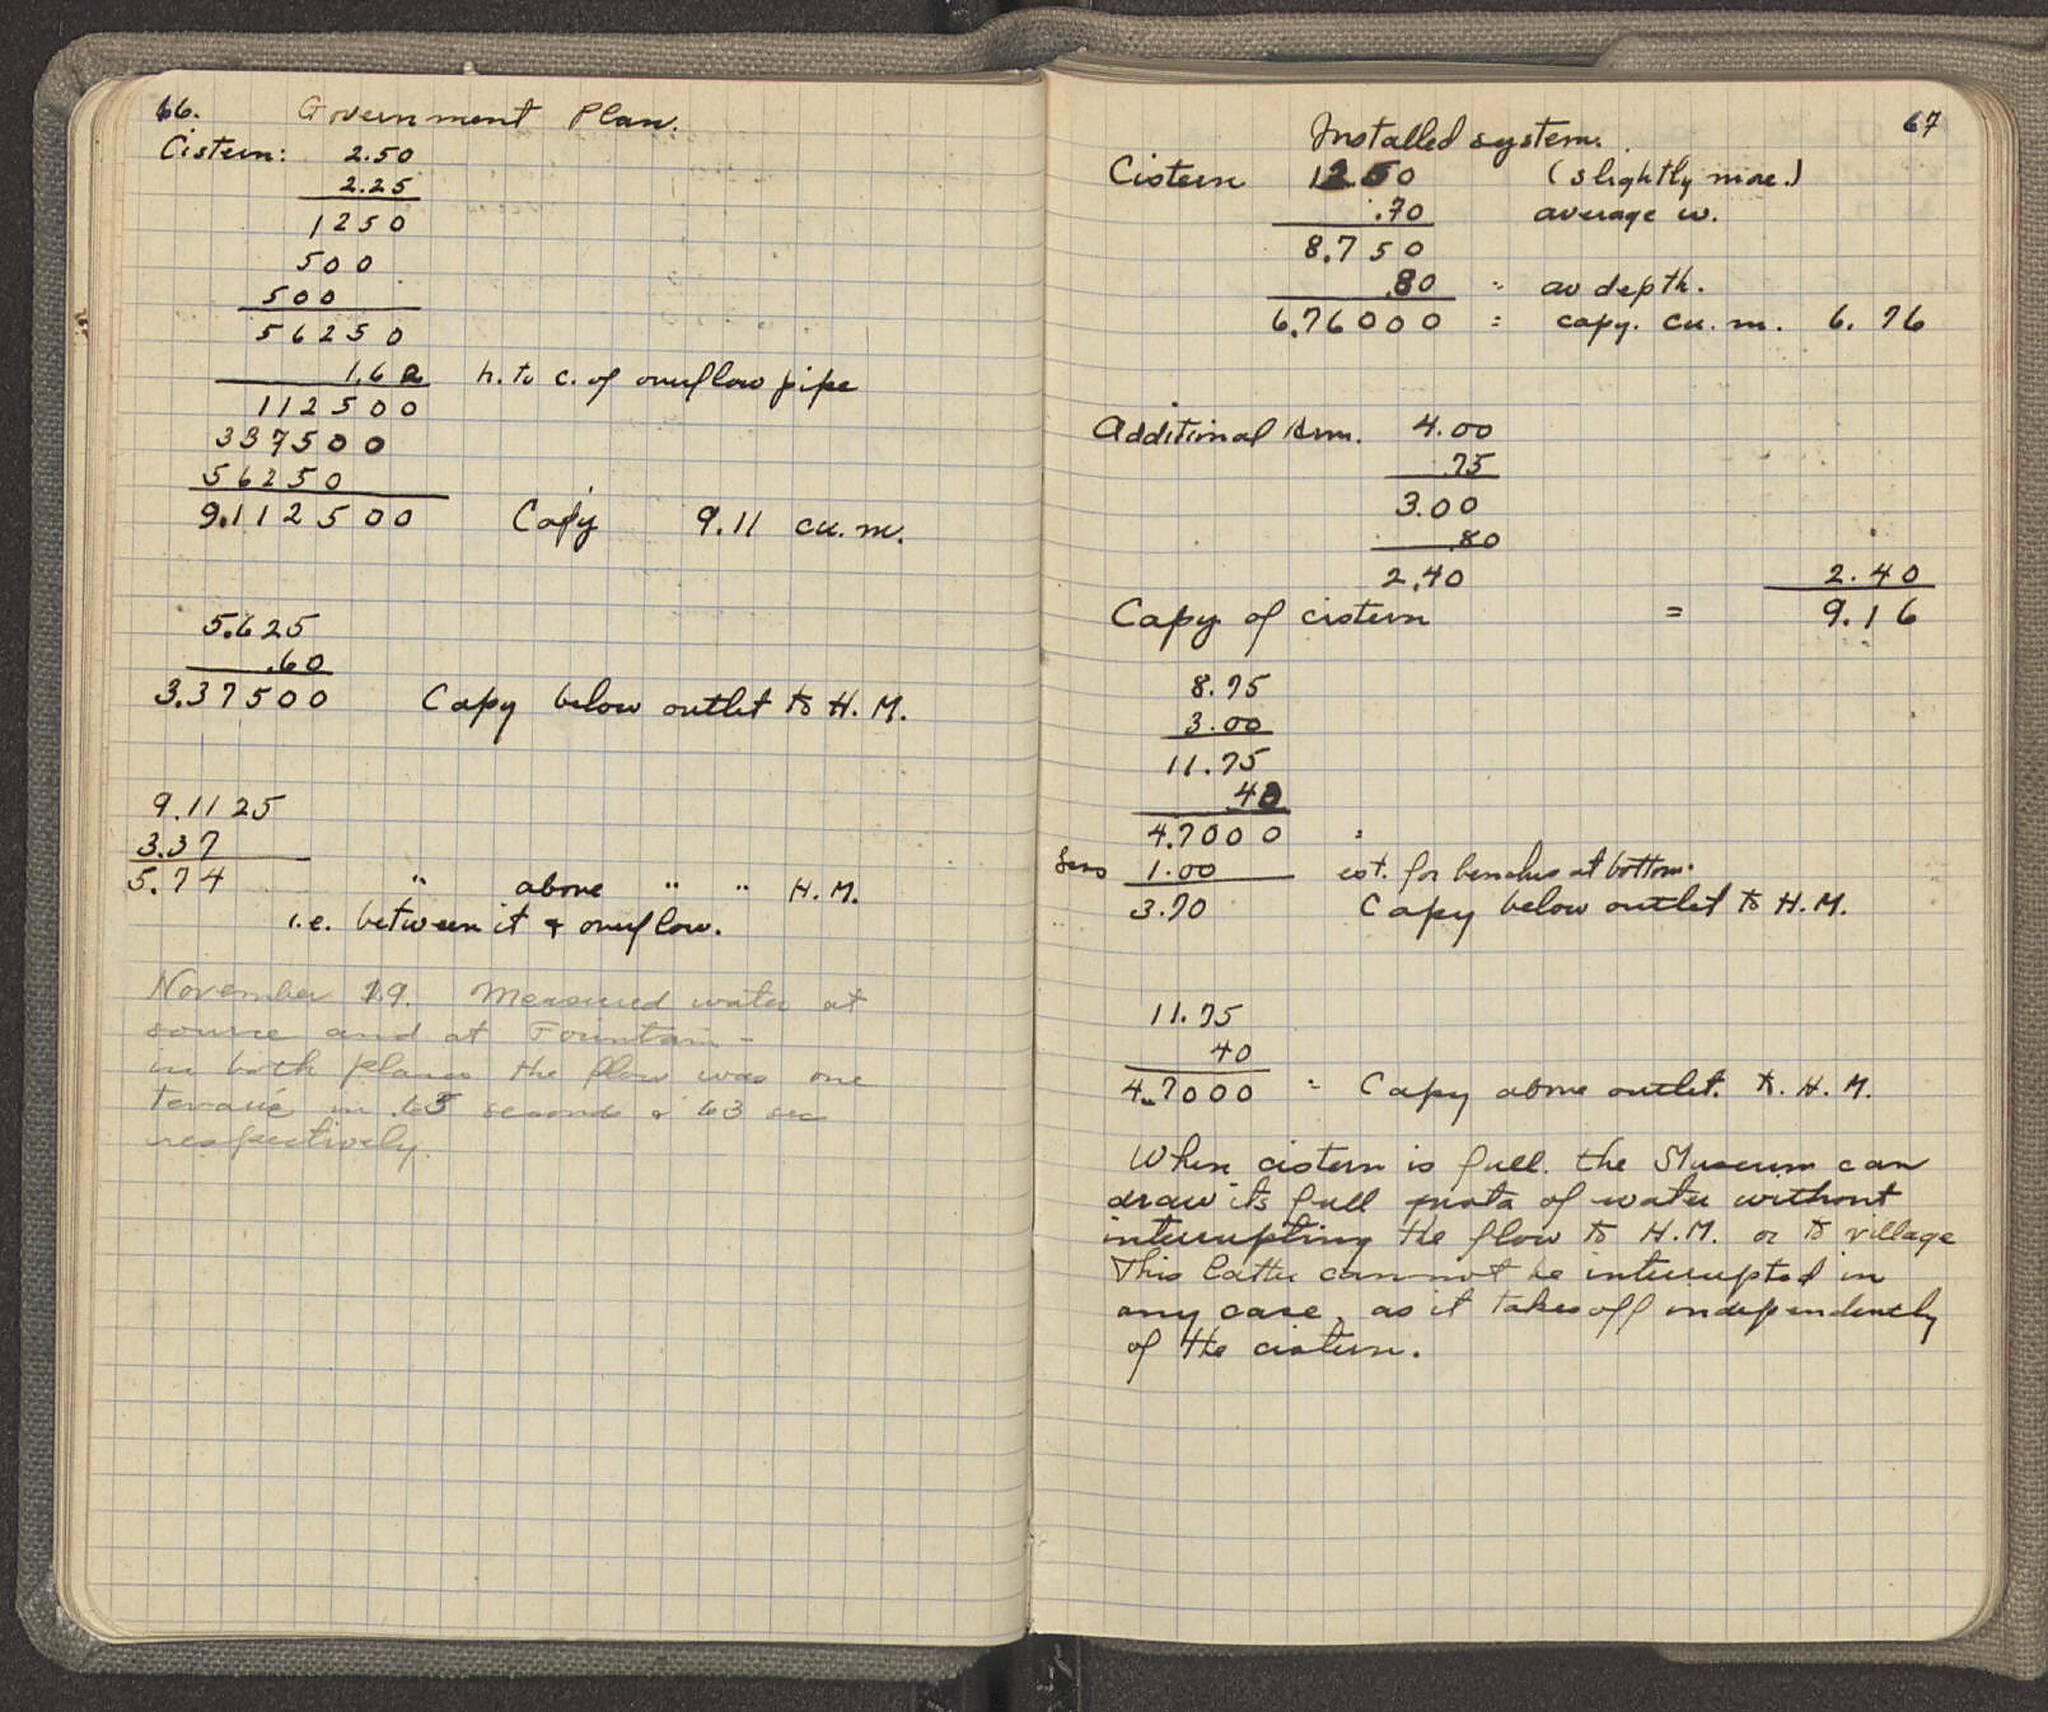 66. Government Plan.
Cistern: 2.50
2.25
1250
500
500
56250
1.62 h. to c. of overflow pipe
112500
337500
56250
9.112500 Capy 9.11 cu. m.
5.625
.60
3.37500 Capy below outlet to H. M.
9.1125
3.37
5.74 " above " " H. M.
i.e. between it & overflow.
November 19. Measured water at
source and at Fountain -
in both places the flow was one
in 63 sec
respectively.
67
Installed system.
Cistern 12.50 (slightly more.)
.70 average w.
8.750
.80 " av depth.
6.76000 = capy. cu. m. 6.76
Additional Arm. 4.00
.75
3.00
.80
2.40 2.40
Capy of cistern = 9.16
8.75
3.00
11.75
40
4.7000 =
less 1.00 est. for benches at bottom.
3.70 Capy below outlet to H.M.
11.75
40
4.7000 = Capy above outlet. to. H. M.
When cistern is full. the Museum can
draw its full quota of water without
interrupting the flow to H.M. or to village
This latter cannot be interrupted in
any case, as it takes off independently
of the cistern.